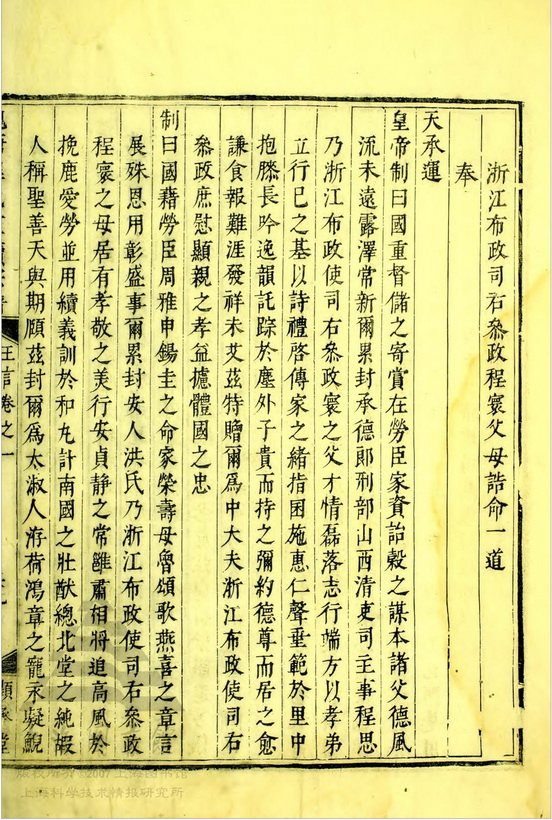 浙江布政司右叅政程寰父母誥命一道
奉
天承運
皇帝制曰國重督儲之寄賞在勞臣家資詒穀之謀本諸父德風
流未遠露澤常新爾累封承德郎刑部山西清吏司主事程思
乃浙江布政使司右叅政寰之父才情磊落志行端方以孝弟
立行己之基以詩禮啓傳家之緒指囷施惠仁聲垂範於里中
抱膝長吟逸韻託踪於塵外子貴而持之彌約德尊而居之愈
謙食報難涯發祥未艾茲特贈爾爲中大夫浙江布政使司右
叅政庶慰顯親之孝益攄體國之忠
制曰國藉勞臣周雅申錫圭之命家榮壽母魯頌歌燕喜之章言
展殊恩用彰盛事爾累封安人洪氏乃浙江布政使司右叅政
程寰之母居有孝敬之美行安貞静之常雝肅相將追高風於
挽鹿愛勞並用續義訓於和丸計南國之壯猷總北堂之純嘏
人稱聖善天與期頤茲封爾爲太淑人洊荷鴻章之寵永凝鯢
王言卷之一
順承堂
版权所有©2007上海图书馆
上海科学技术情报研究所